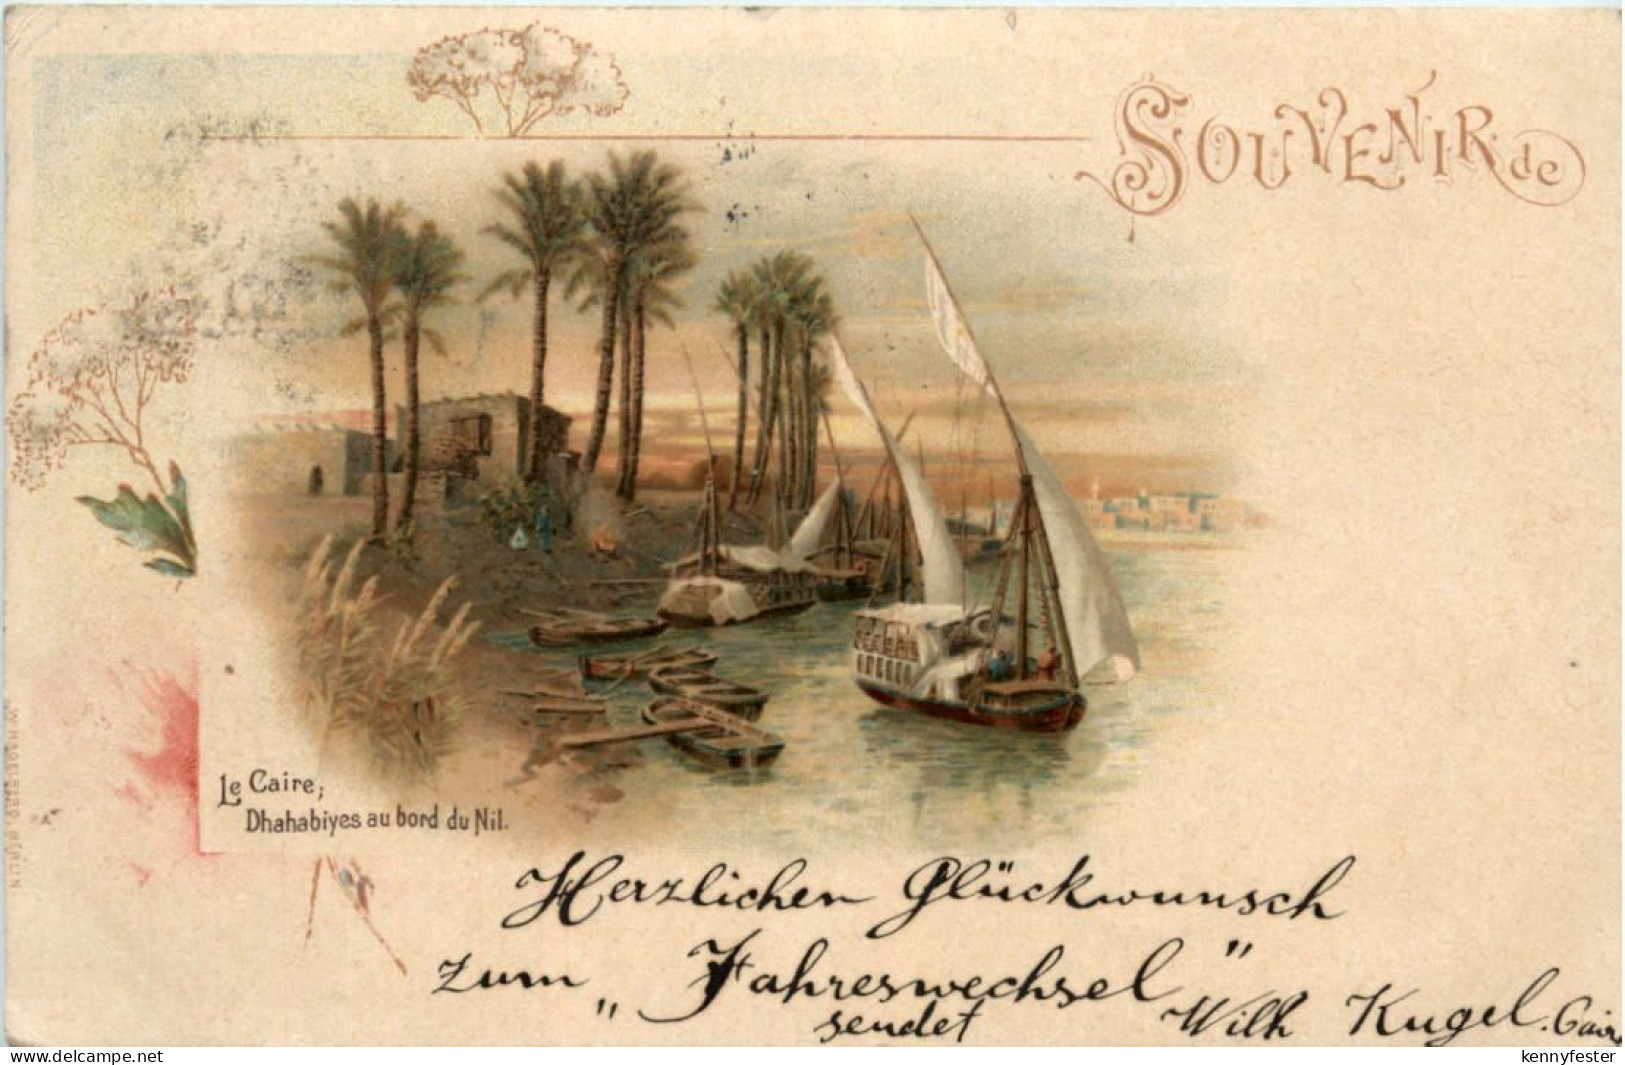 SOUVENIR de
Le Caire;
Dhahabiyes au bord du Nil.
W. HAGELBERG, BERLIN
Herzlichen Glückwunsch
zum „Jahreswechsel"
sendet Wilh Kugel. Cairo
www.delcampe.net
kennyfester